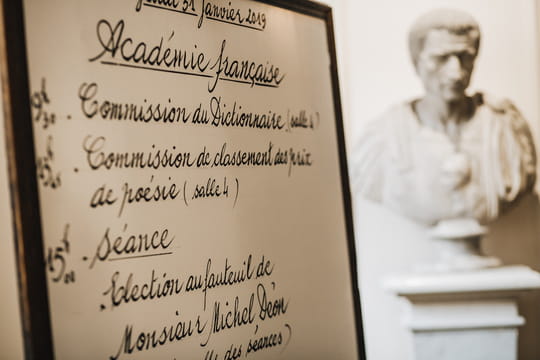 Jeudi 31 Janvier 2019
Académie française
9h30 - Commission du Dictionnaire (salle 4)
- Commission de classement des prix
de poésie (salle 4)
15h00 - Séance
- Election au fauteuil de
Monsieur Michel Déon
salle des séances)